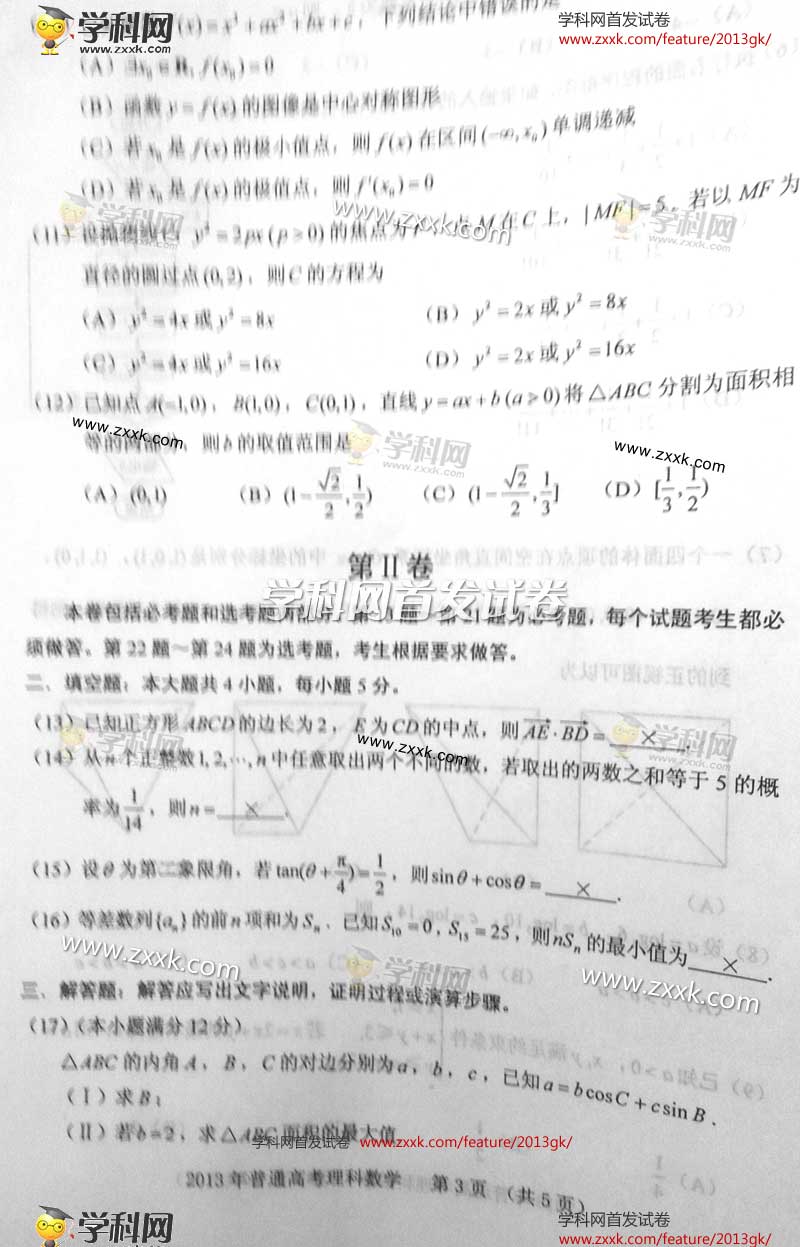 学科网首发试卷
www.zxxk.com/feature/2013gk/
学科网
www.zxxk.com
f(x)=x³+ax²+bx+c，下列结论中错误的是
(A) ∃x₀∈R, f(x₀)=0
(B) 函数 y=f(x) 的图像是中心对称图形
(C) 若 x₀ 是 f(x) 的极小值点，则 f(x) 在区间(-∞,x₀)单调递减
(D) 若 x₀ 是 f(x) 的极值点，则 f'(x₀)=0
(11) 设抛物线C y²=2px(p≥0)的焦点为 点M在C上，|MF|=5．若以 MF 为
直径的圆过点(0,2)，则C的方程为
(A) y²=4x 或 y²=8x (B) y²=2x 或 y²=8x
(C) y²=4x 或 y²=16x (D) y²=2x 或 y²=16x
(12) 已知点 A(-1,0)，B(1,0)，C(0,1)，直线 y=ax+b(a>0)将 △ABC 分割为面积相
等的两部分，则b的取值范围是
(A) (0,1) (B) (1-√2/2, 1/2) (C) (1-√2/2, 1/3] (D) [1/3, 1/2)
第 II 卷
学科网首发试卷
本卷包括必考题和选考题两部分．第 题为必考题，每个试题考生都必
须做答。第 22 题～第 24 题为选考题，考生根据要求做答。
二、填空题：本大题共 4 小题，每小题 5 分。
(13) 已知正方形 ABCD 的边长为 2，E 为 CD 的中点，则 AE·BD=___×___.
(14) 从 n 个正整数 1, 2, …, n 中任意取出两个不同的数，若取出的两数之和等于 5 的概
率为 1/14，则 n=___×___.
(15) 设θ为第二象限角，若 tan(θ+π/4)=1/2，则 sinθ+cosθ=___×___.
(16) 等差数列{aₙ}的前 n 项和为 Sₙ．已知 S₁₀=0, S₁₅=25，则 nSₙ 的最小值为___×___.
三、解答题：解答应写出文字说明，证明过程或演算步骤。
(17)（本小题满分 12 分）
△ABC 的内角 A，B，C 的对边分别为 a，b，c，已知 a=bcosC+csinB．
(Ⅰ) 求 B；
(Ⅱ) 若 b=2，求 △ABC 面积的最大值
学科网首发试卷 www.zxxk.com/feature/2013gk/
2013 年普通高考理科数学 第 3 页 (共 5 页)
学科网
www.zxxk.com
学科网首发试卷
www.zxxk.com/feature/2013gk/